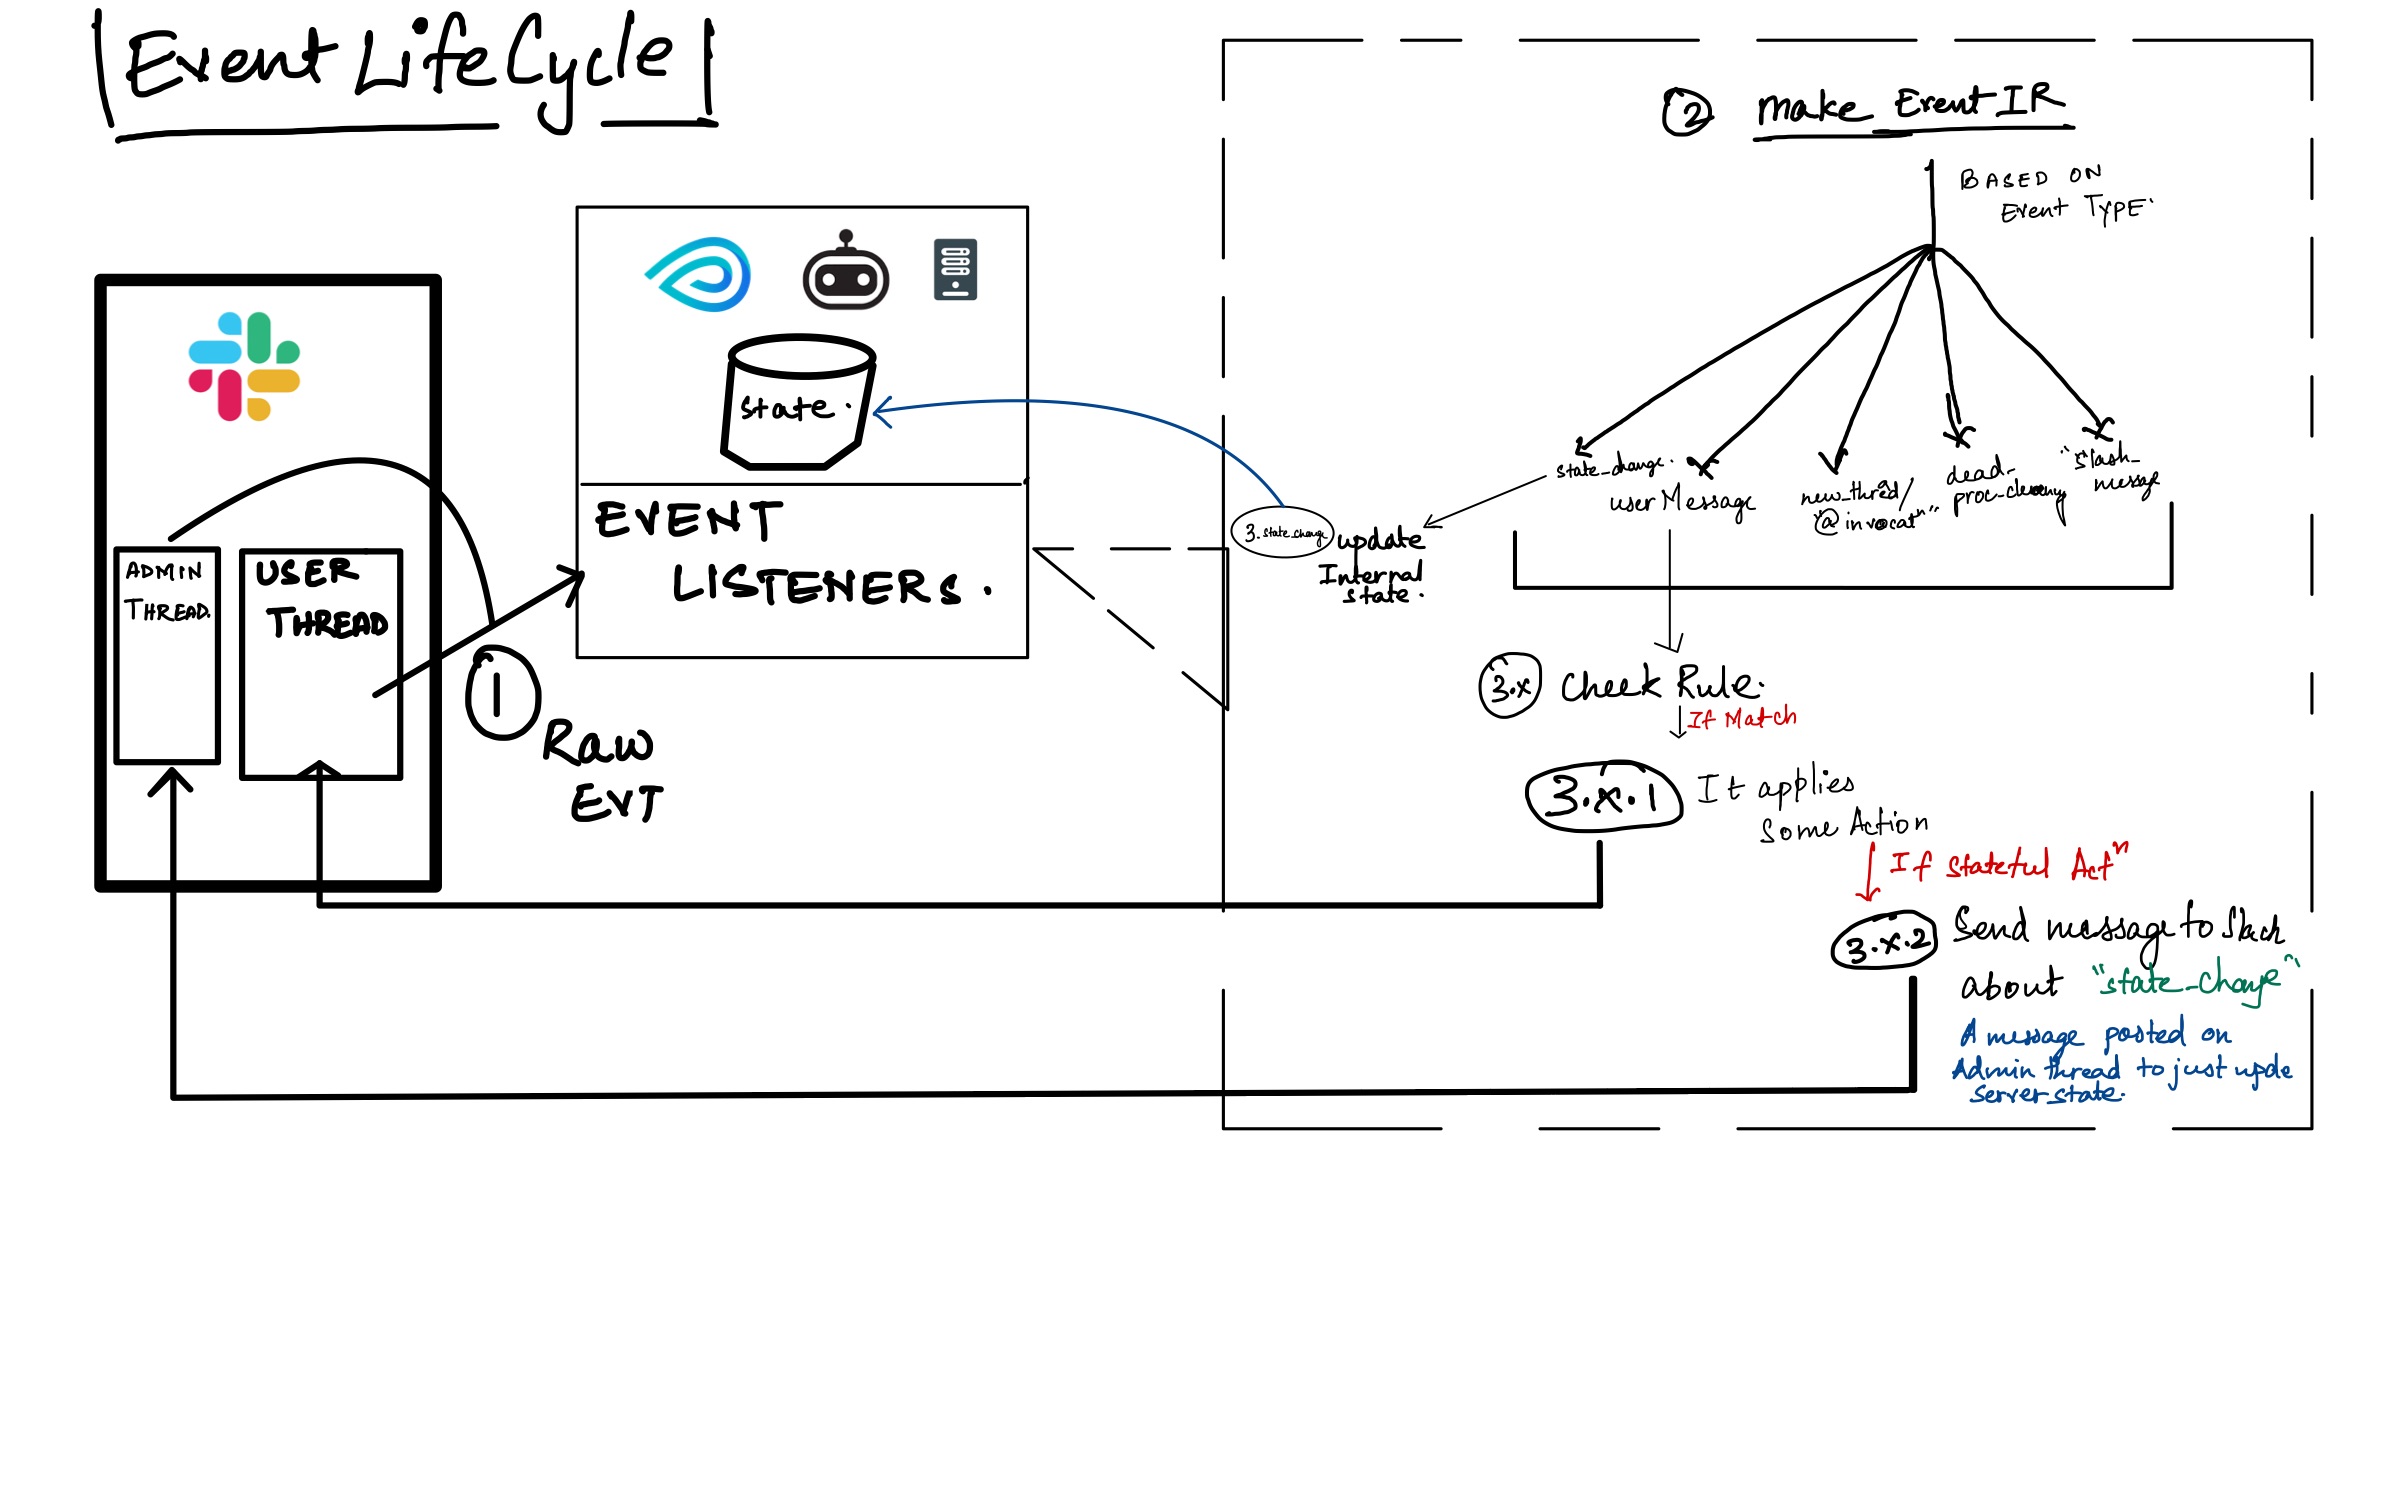 Event LifeCycle
ADMIN
THREAD.
USER
THREAD
1
Raw
EVT
state.
EVENT
LISTENERS.
2 Make Event IR
BASED ON
Event TYPE.
state_change.
userMessage
new_thred/
"@invocatn"
dead_
"slash_
message
3. state_change
update
Internal
state.
3.x Check Rule.
If Match
3.x.1 It applies
Some Action
If stateful Actn
3.x.2 Send message to Slack
about "state_change"
A message posted on
Admin thread to just upde
server state.